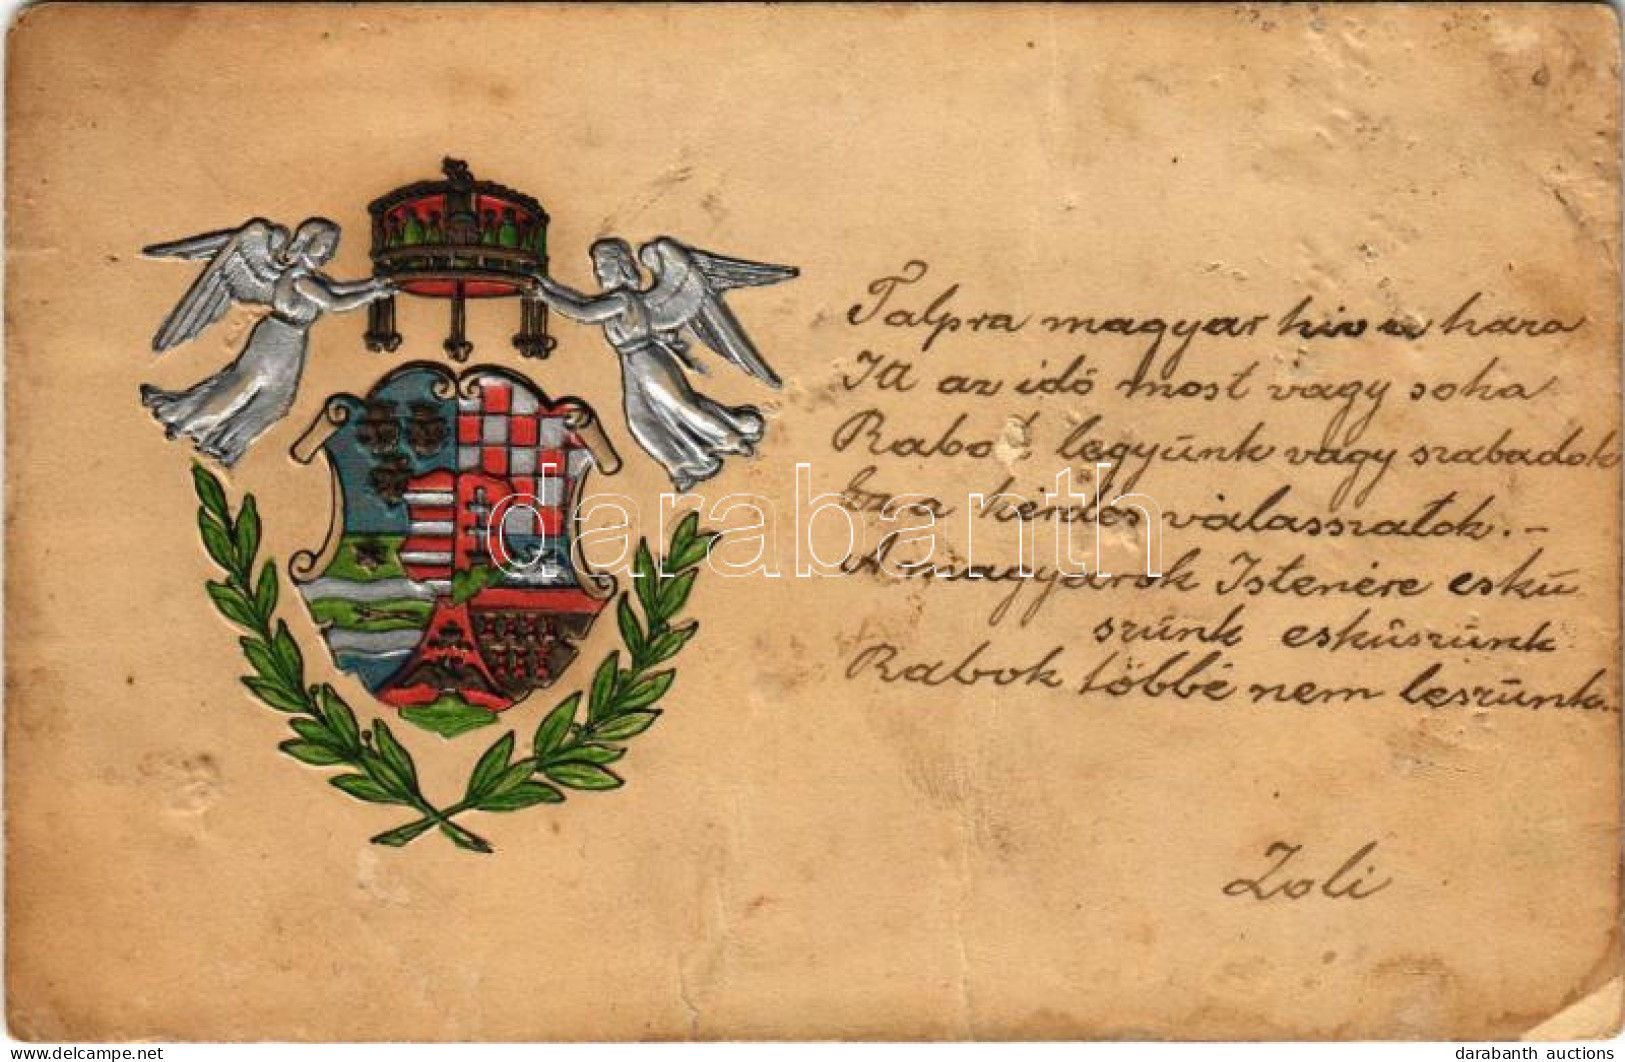 Talpra magyar hiv a haza
Itt az idő most vagy soha
Rabok legyünk vagy szabadok
Ez a kérdés válasszatok. –
A magyarok Istenére eskü
szünk esküszünk
Rabok többé nem leszünk.
Zoli
darabanth
www.delcampe.net
darabanth auctions